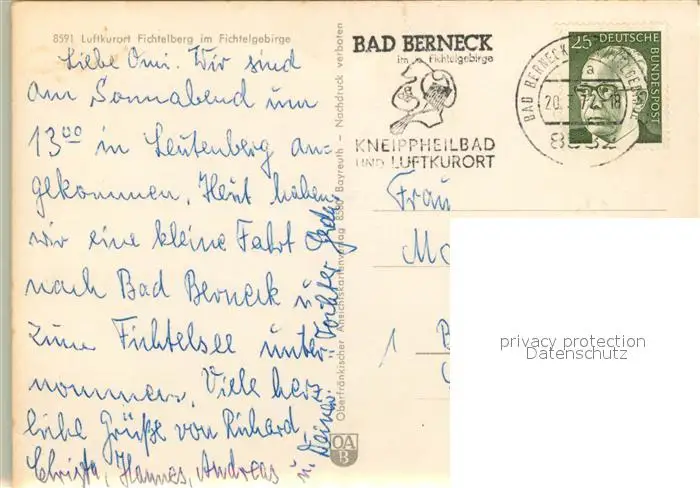 8591 Luftkurort Fichtelberg im Fichtelgebirge
Liebe Omi. Wir sind
am Sonnabend um
13⁰⁰ in Leutenberg an-
gekommen. Heut haben
wir eine kleine Fahrt
nach Bad Berneck u.
zum Fichtelsee unter-
nommen. Viele herz
liche Grüße von Richard
Christa, Hannes, Andreas
u. Deiner Tochter
Oberfränkischer Ansichtskartenverlag 8580 Bayreuth - Nachdruck verboten
OA
B
BAD BERNECK
im Fichtelgebirge
KNEIPPHEILBAD
UND LUFTKURORT
BAD BERNECK
a
20. 72-18
25 DEUTSCHE
BUNDESPOST
Frau
1
privacy protection
Datenschutz